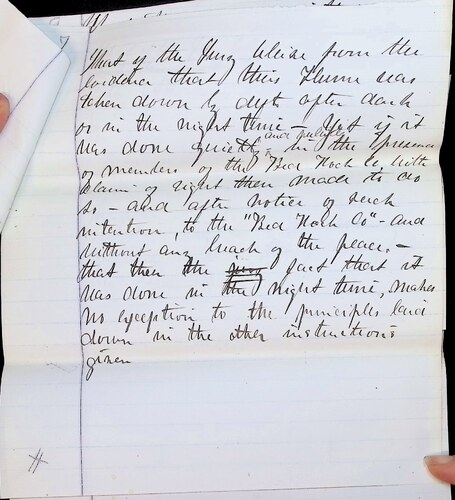 7
That if the Jury believe from the
evidence that this Flume was
taken down by defts after dark
or in the night time - Yet if it
was done quietly and publicly in the presence
of members of the "Bed Rock Co. with
claim of right then made to do
so - and after notice of such
intention, to the "Bed Rock Co" - and
without any breach of the peace, -
that then the Jury fact that it
was done in the night time, makes
no exception to the principles laid
down in the other instructions
given
H